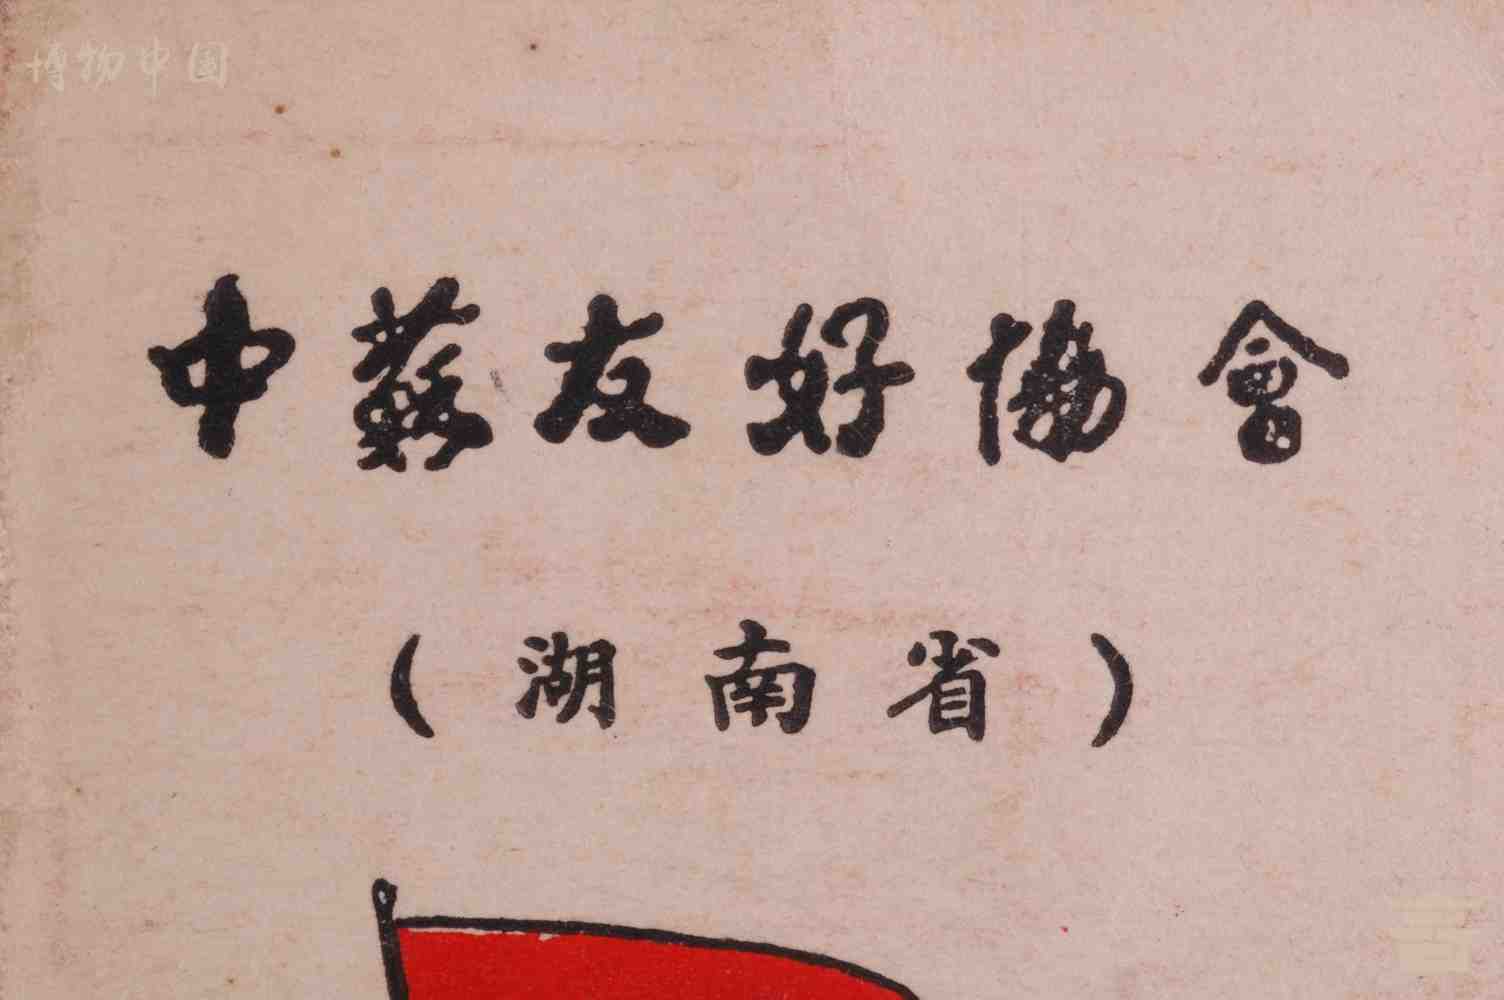 博物中国
中蘇友好協會
(湖南省)